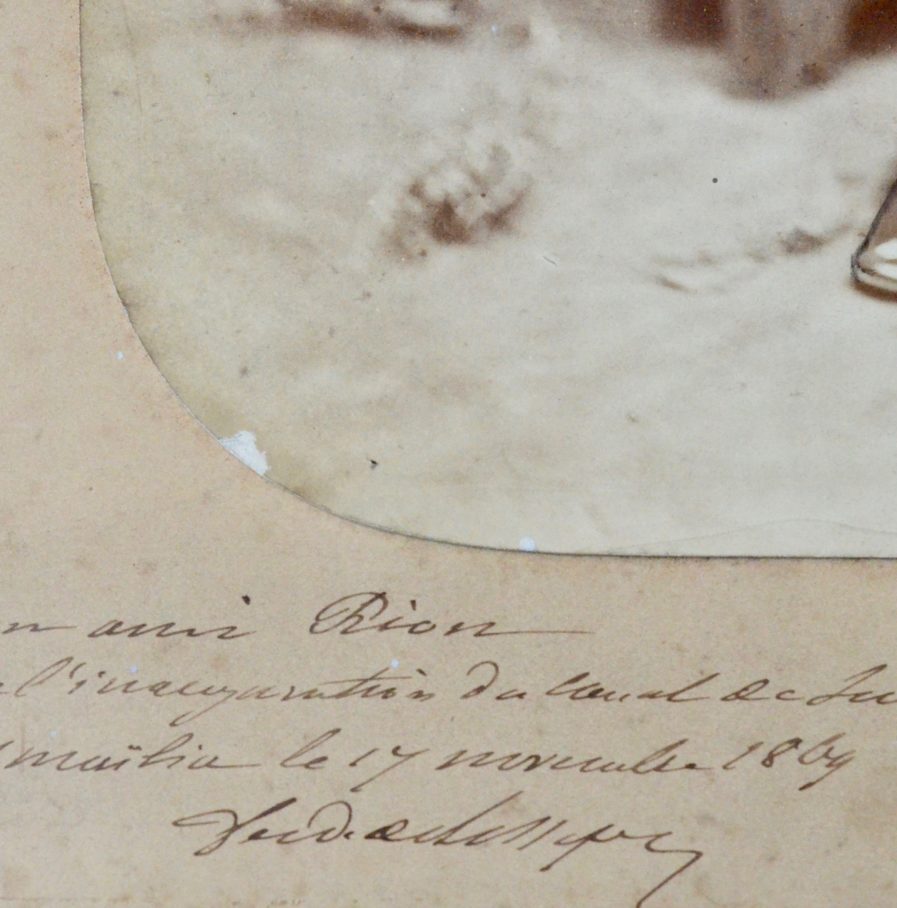 n ami Riou
l'inauguration du Canal de Su
maïlia le 17 novembre 1869
Ferd. de Lesseps